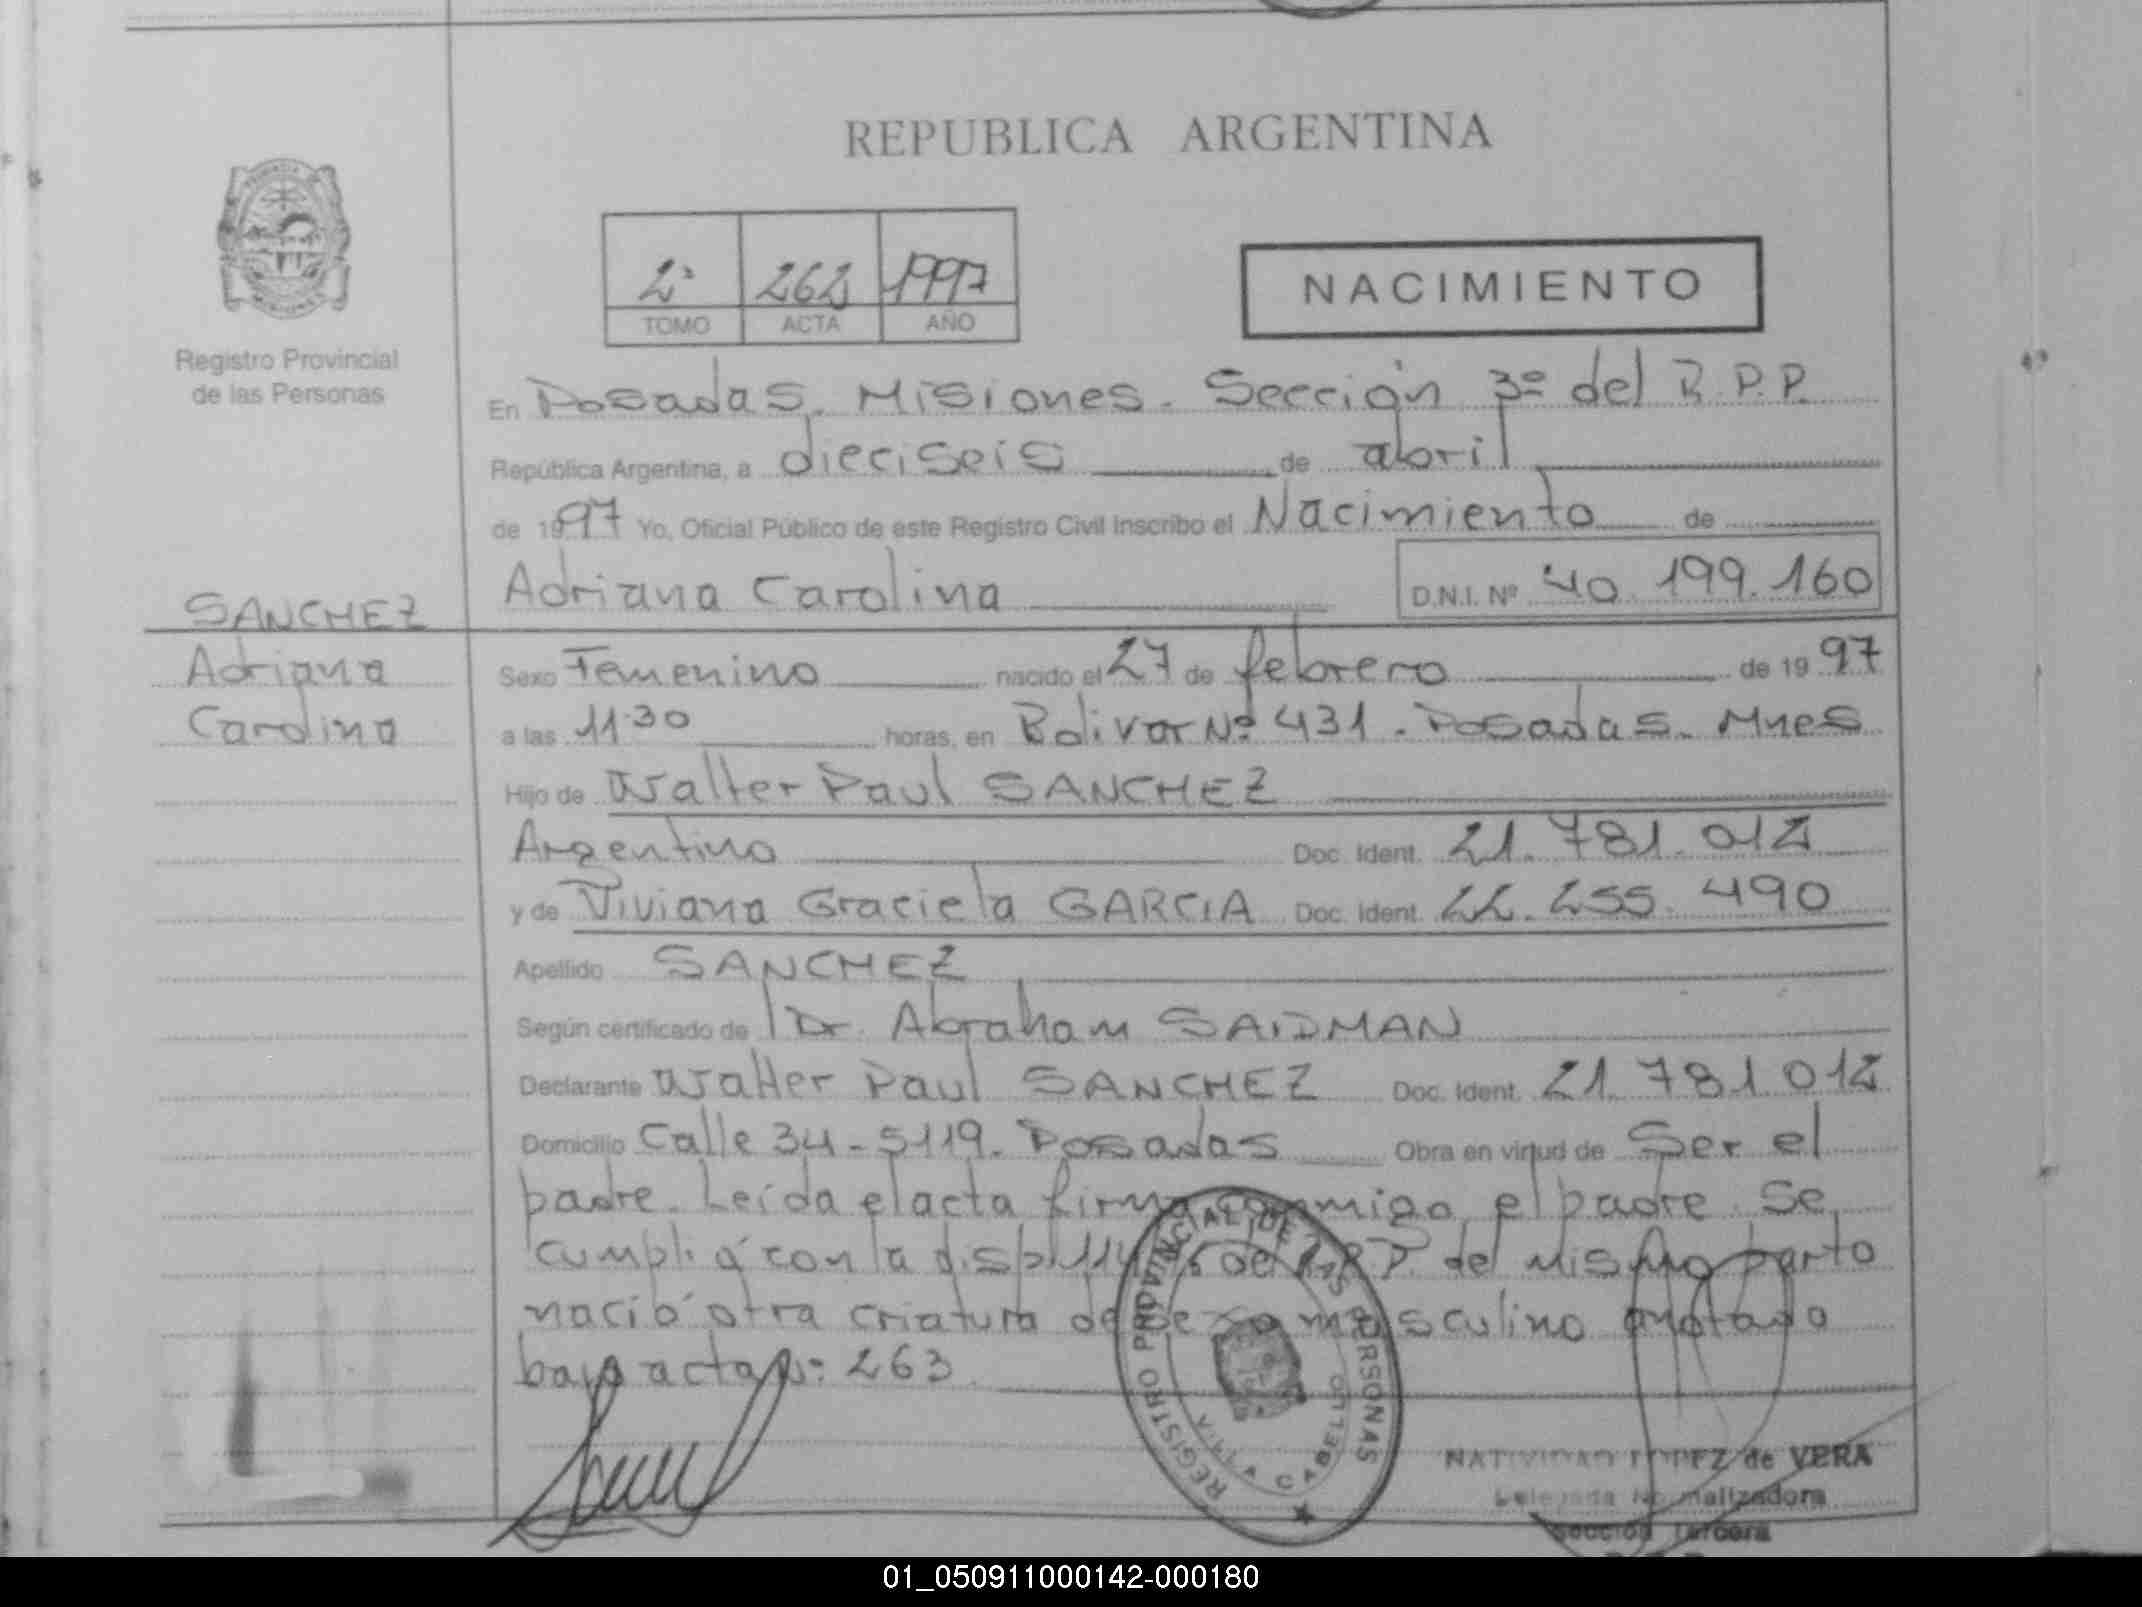 REPUBLICA ARGENTINA
2º 262 1997
TOMO ACTA AÑO
NACIMIENTO
Registro Provincial
de las Personas
En Posadas. Misiones. Sección 3º del R.P.P.
República Argentina, a dieciseis de abril
de 1997 Yo, Oficial Público de este Registro Civil Inscribo el Nacimiento de
Adriana Carolina D.N.I. Nº 40.199.160
SANCHEZ
Adriana
Carolina
Sexo Femenino nacido el 27 de febrero de 1997
a las 11.30 horas, en Bolivar Nº 431. Posadas. Mnes
Hijo de Walter Paul SANCHEZ
Argentino Doc. Ident. 21.781.012
y de Viviana Graciela GARCIA Doc. Ident. 22.255.490
Apellido SANCHEZ
Según certificado de Dr. Abraham SAIDMAN
Declarante Walter Paul SANCHEZ Doc. Ident. 21.781.012
Domicilio Calle 34-5119. Posadas Obra en virtud de Ser el
padre. Leída el acta firma conmigo el padre. Se
cumplió con la disp. del mismo parto
nació otra criatura de sexo masculino anotado
bajo acta nº: 263
REGISTRO PROVINCIAL DE LAS PERSONAS
VILLA CABELLO
NATIVIDAD LOPEZ de VERA
Delegada Normalizadora
Sección Tercera
01_050911000142-000180